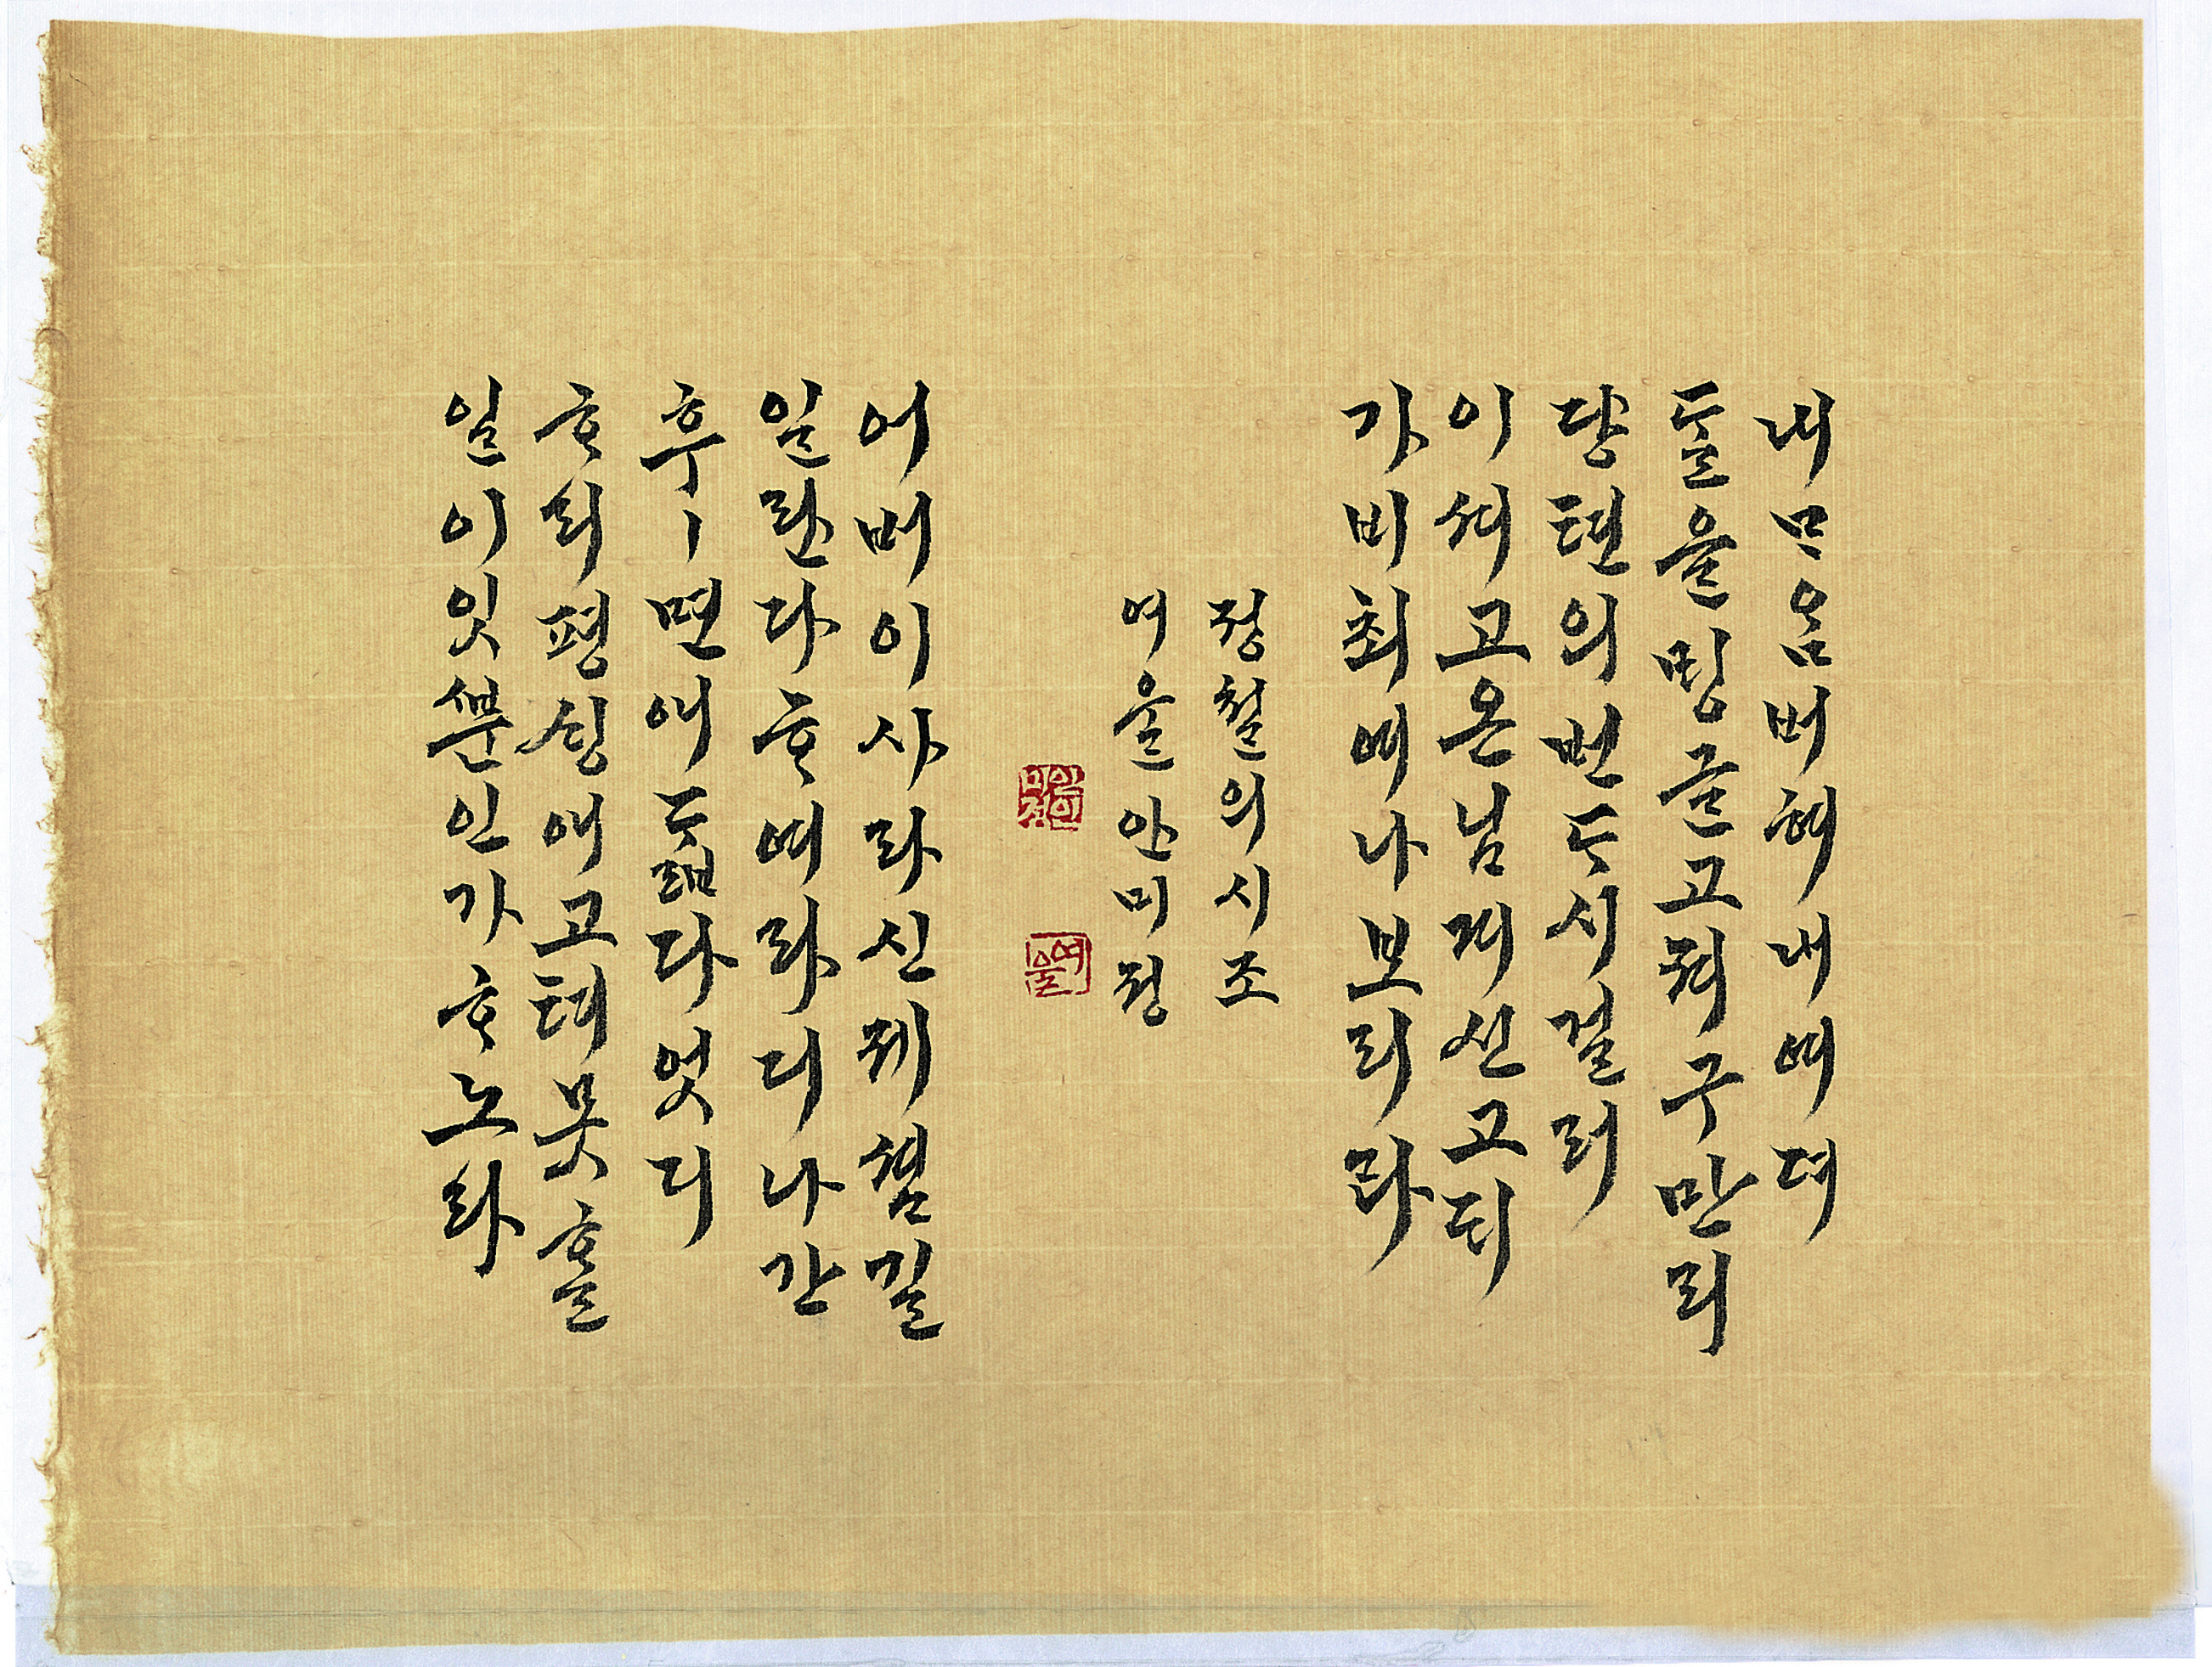 내ᄆᆞᄋᆞᆷ버혀내여뎌
ᄃᆞᆯ을ᄆᆡᆼ글고져구만리
댱텬의번ᄃᆞ시걸려
이셔고온님계신고ᄃᆡ
가비최여나보리라
정철의시조
여울안미정
여울
어버이사라신제셤길
일란다ᄒᆞ여라디나간
후ㅣ면애ᄃᆞᆲ다엇디
ᄒᆞ리평ᄉᆡᆼ애고텨못ᄒᆞᆯ
일이잇ᄲᅮᆫ인가ᄒᆞ노라